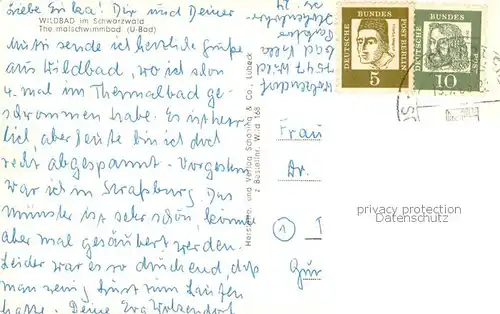 Liebe Erika! Dir und Deiner
WILDBAD im Schwarzwald
Thermalschwimmbad (U-Bad)
Mutti sende ich herzliche Grüße
aus Wildbad, wo ich schon
4. mal im Thermalbad ge-
schwommen habe. Es ist herr-
lich, aber heute bin ich doch
recht abgespannt. Vorgestern
war ich in Straßburg. Das
Münster ist sehr schön, könnte
aber mal gesäubert werden.
Leider war es so drückend, daß
man wenig Lust zum Laufen
hatte. Deine Eva Wolzendorf
Wolzendorf
7547 Wild
bad
Herstellg. und Verlag Schöning & Co., Lübeck
z Bestellnr. Wild 168
DEUTSCHE BUNDES POST BERLIN
5
DEUTSCHE BUNDES POST BERLIN
10
Frau
Dr.
1
privacy protection
DELCAMPE